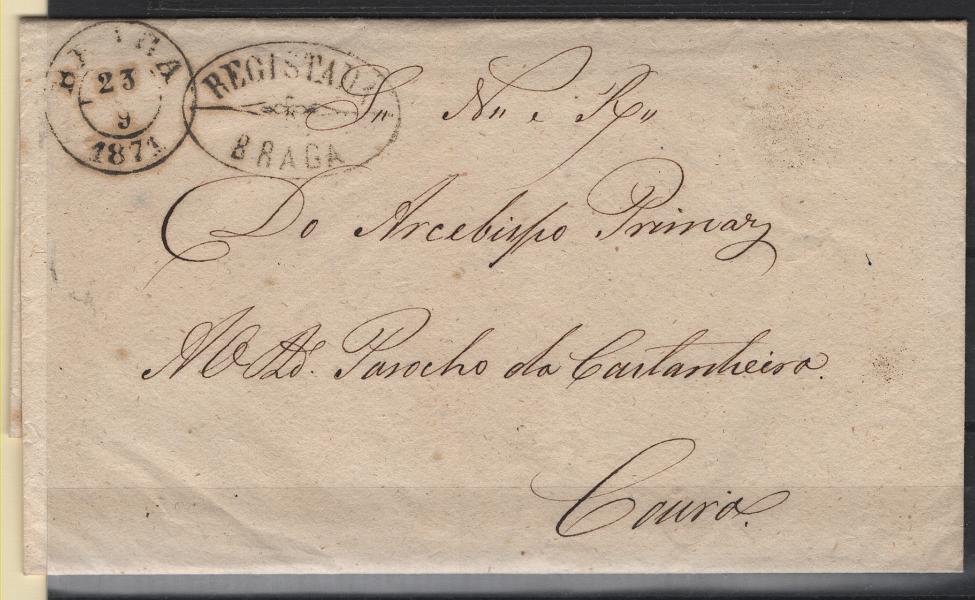 BRAGA
23
9
1871
REGISTADA
BRAGA
Sn. Nn. e Rn.
Do Arcebispo Primaz
Ao Rd. Parocho da Castanheira.
Coura.